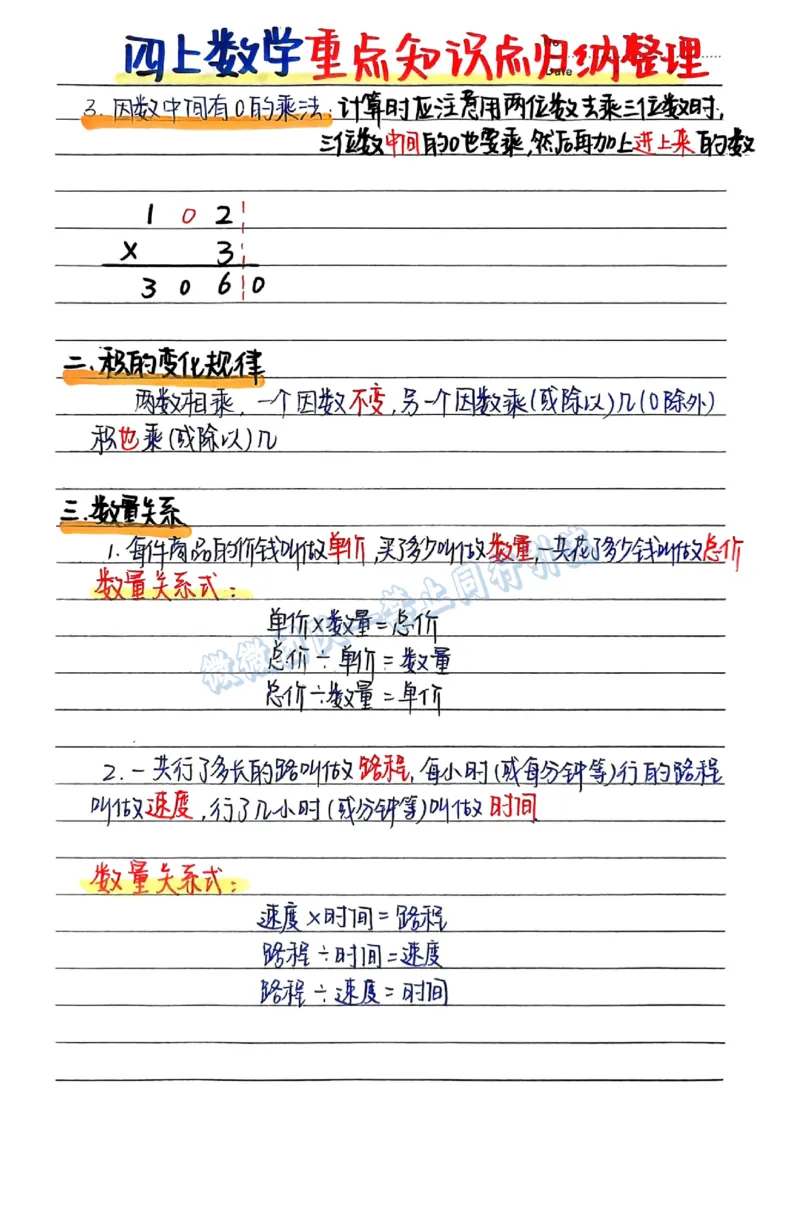 四上数学重点知识点归纳整理
3.因数中间有0的乘法:计算时应注意用两位数去乘三位数时,
三位数中间的0也要乘,然后再加上进上来的数
1 0 2
× 3
3 0 6 0
二.积的变化规律
两数相乘,一个因数不变,另一个因数乘(或除以)几(0除外)
积也乘(或除以)几
三.数量关系
1.每件商品的价钱叫做单价,买了多少叫做数量,一共花了多少钱叫做总价
数量关系式:
单价×数量=总价
总价÷单价=数量
总价÷数量=单价
2.一共行了多长的路叫做路程,每小时(或每分钟等)行的路程
叫做速度,行了几小时(或分钟等)叫做时间
数量关系式:
速度×时间=路程
路程÷时间=速度
路程÷速度=时间